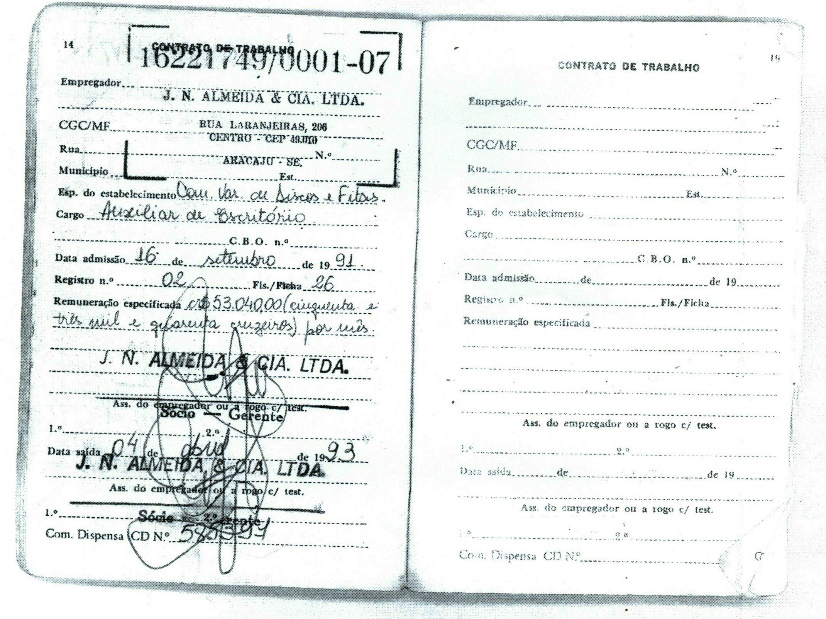 14
CONTRATO DE TRABALHO
16221749/0001-07
Empregador
J. N. ALMEIDA & CIA. LTDA.
CGC/MF RUA LARANJEIRAS, 206
CENTRO - CEP 49.010
Rua N.º
ARACAJU - SE.
Município Est.
Esp. do estabelecimento Com. Var. de Discos e Fitas.
Cargo Auxiliar de Escritório
C.B.O. n.º
Data admissão 16 de setembro de 1991
Registro n.º 02 Fls./Ficha 26
Remuneração especificada Cr$ 53.040,00 (cinquenta e
três mil e quarenta cruzeiros) por mês.
J. N. ALMEIDA & CIA. LTDA.
Ass. do empregador ou a rogo c/ test.
Sócio — Gerente
1.º 2.º
Data saída 04 de abril de 1993
J. N. ALMEIDA & CIA. LTDA.
Ass. do empregador ou a rogo c/ test.
1.º 2.º
Sócio — Gerente
Com. Dispensa CD N.º
15
CONTRATO DE TRABALHO
Empregador
CGC/MF
Rua N.º
Município Est.
Esp. do estabelecimento
Cargo
C.B.O. n.º
Data admissão de de 19
Registro n.º Fls./Ficha
Remuneração especificada
Ass. do empregador ou a rogo c/ test.
1.º 2.º
Data saída de de 19
Ass. do empregador ou a rogo c/ test.
1.º 2.º
Com. Dispensa CD N.º